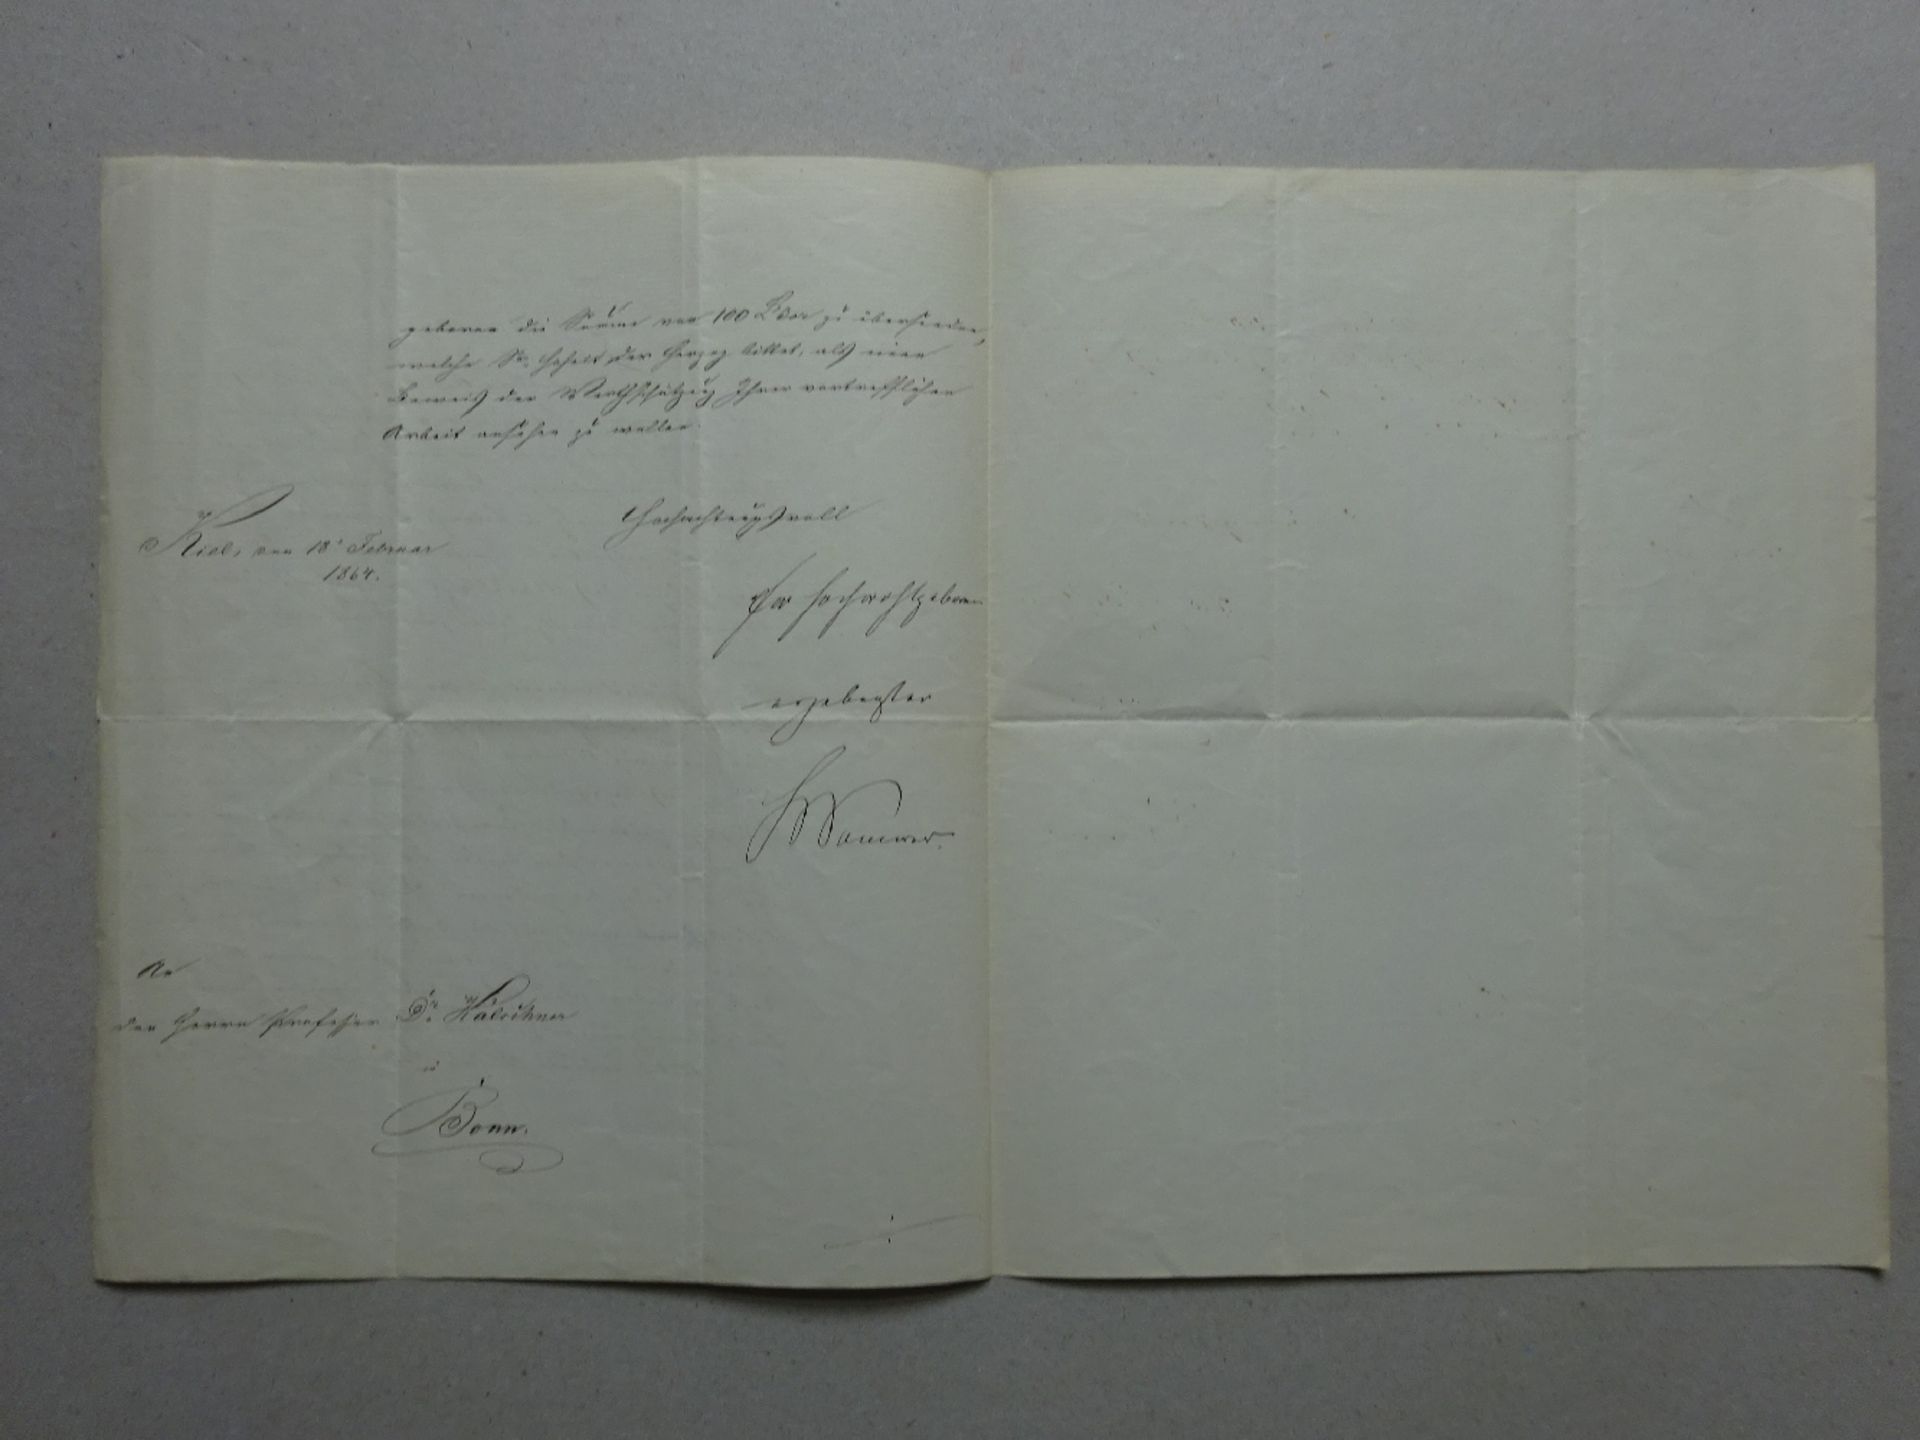 geboren die Summe von 100 Ldor zu übersenden,
welche Se. Hoheit der Herzog bittet, als einen
Beweis der Werthschätzung Ihrer vortrefflichen
Arbeit ansehen zu wollen.
Hochachtungsvoll
Kiel, den 18t Februar
1864.
Ew Hochwohlgeboren
ergebenster
Samwer.
An
den Herrn Professor Dr. Hälschner
in
Bonn.